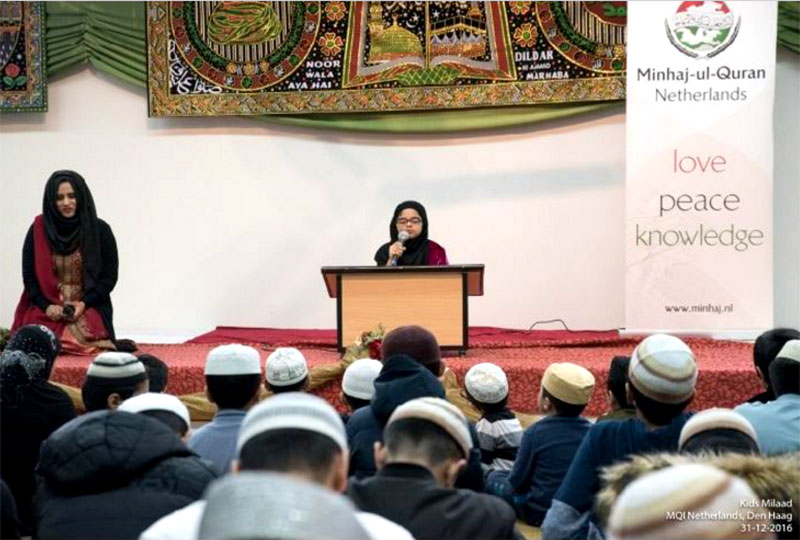 NOOR
WALA
AYA HAI
DILDAR
MARHABA
Minhaj-ul-Quran
Netherlands
love
peace
knowledge
www.minhaj.nl
Kids Milaad
MQI Netherlands, Den Haag
31-12-2016